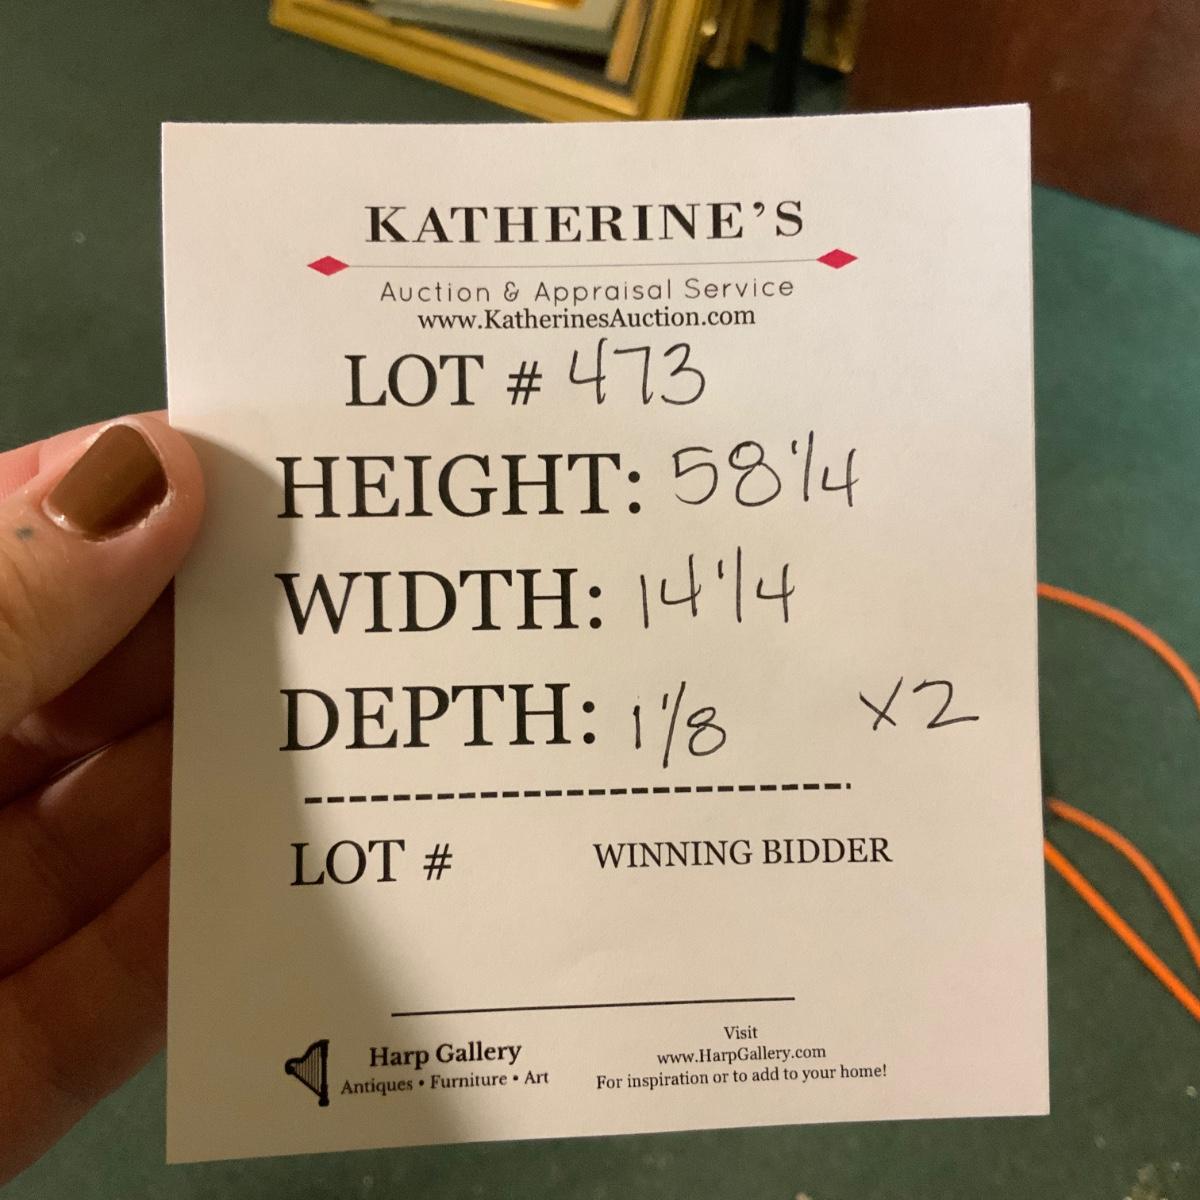 KATHERINE'S
Auction & Appraisal Service
www.KatherinesAuction.com
LOT # 473
HEIGHT: 58 1/4
WIDTH: 14 1/4
DEPTH: 1 1/8 X2
LOT # WINNING BIDDER
Harp Gallery
Antiques • Furniture • Art
Visit
www.HarpGallery.com
For inspiration or to add to your home!